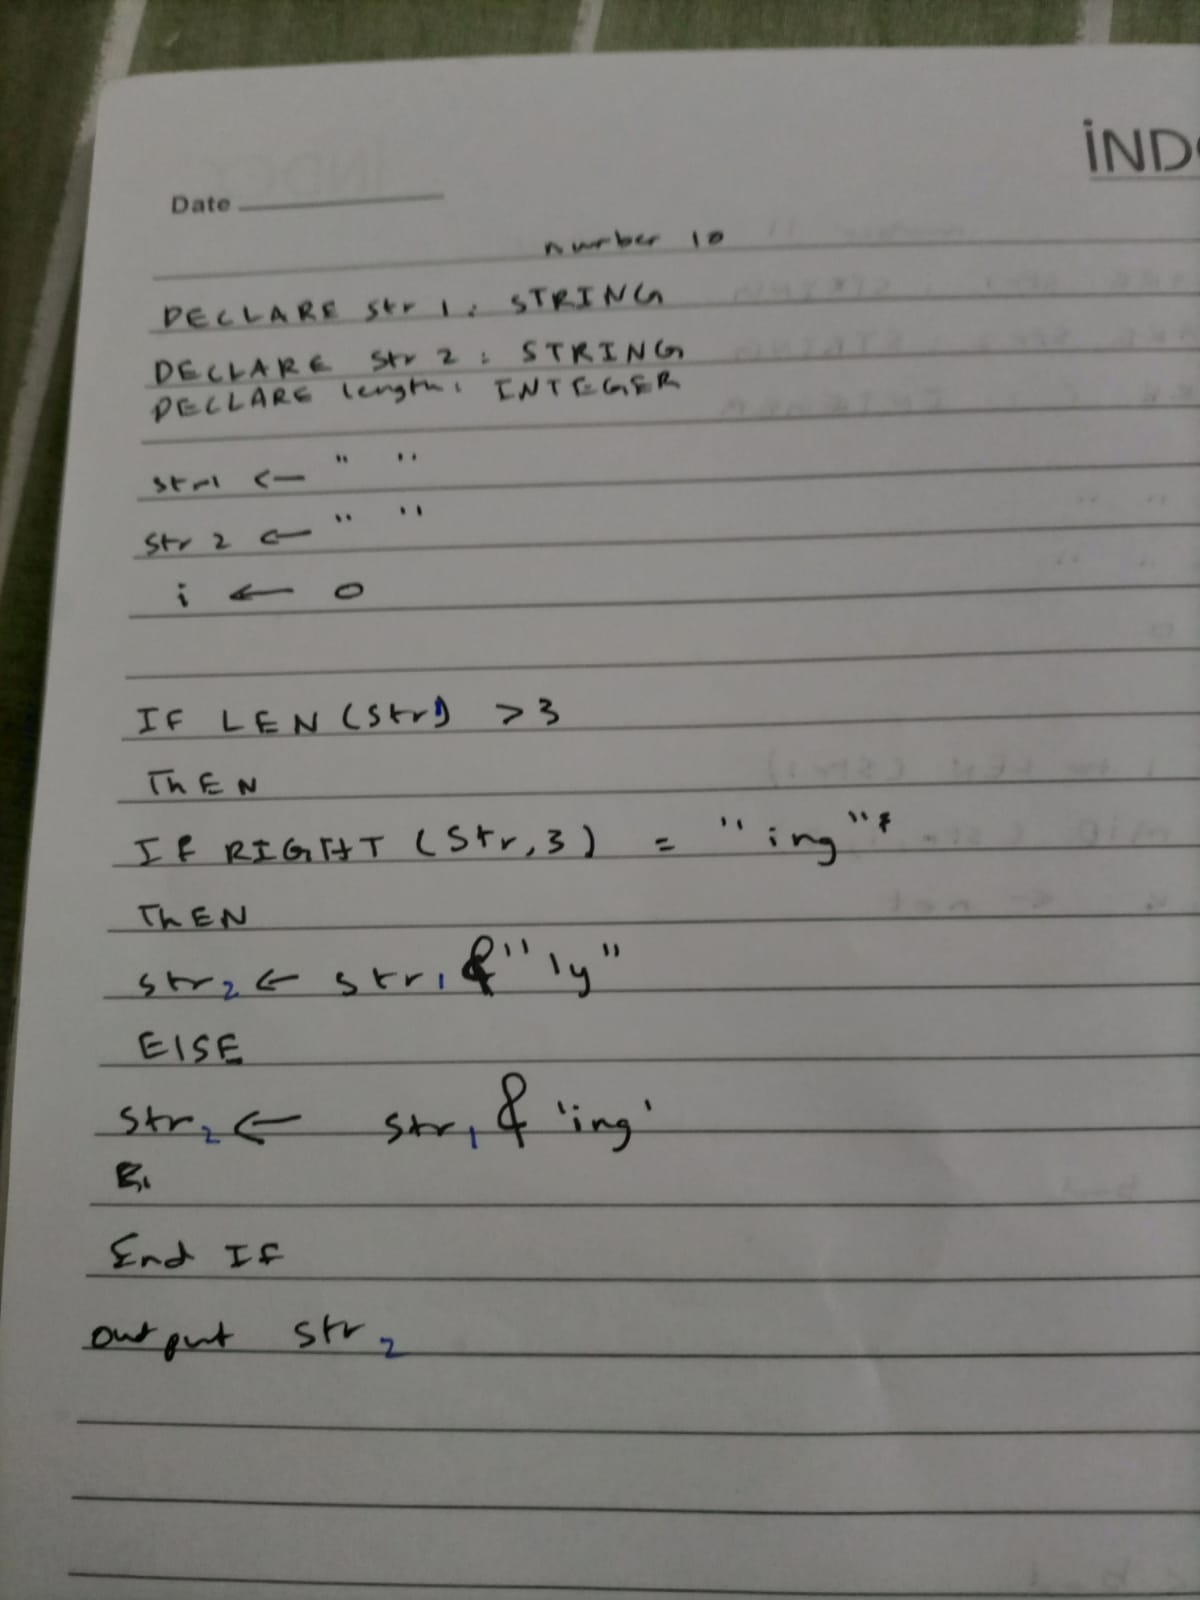 Date
number 10
DECLARE str 1: STRING
DECLARE Str 2: STRING
DECLARE length: INTEGER
str1 <- " "
str 2 <- " "
i <- 0
IF LEN (Str1) >3
ThEN
IF RIGHT (Str,3) = "ing"
ThEN
str2 <- str1 & "ly"
ElSE
str2 <- str1 & 'ing'
End IF
output str2